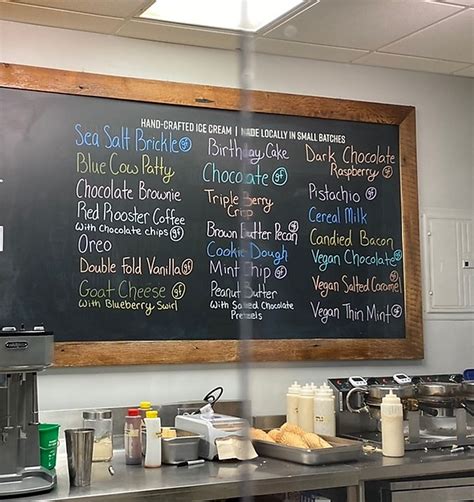 HAND-CRAFTED ICE CREAM | MADE LOCALLY IN SMALL BATCHES
Sea Salt Brickle gf
Blue Cow Patty
Chocolate Brownie
Red Rooster Coffee
With Chocolate chips gf
Oreo
Double Fold Vanilla gf
Goat Cheese gf
With Blueberry Swirl
Birthday Cake
Chocolate gf
Triple Berry
Crisp
Brown Butter Pecan
Cookie Dough
Mint Chip gf
Peanut Butter
With Salted Chocolate
Pretzels
Dark Chocolate
Raspberry gf
Pistachio gf
Cereal Milk
Candied Bacon
Vegan Chocolate gf
Vegan Salted Caramel
Vegan Thin Mint gf